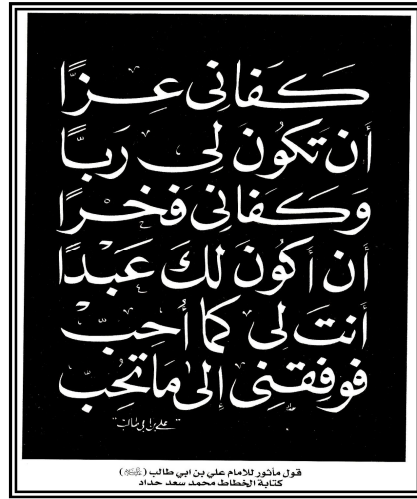 كَفَانى عِزًّا
أَن تَكُونَ لِى رَبًّا
وَكَفَانى فَخْرًا
أَن أَكُونَ لَكَ عَبْدًا
أَنتَ لى كَمَا أُحِبّ
فَوَفِّقنِى إِلى مَا تُحِبّ
"علي بن ابي طالب"
قول مأثور للامام علي بن ابي طالب (عليه السلام)
كتابة الخطاط محمد سعد حداد